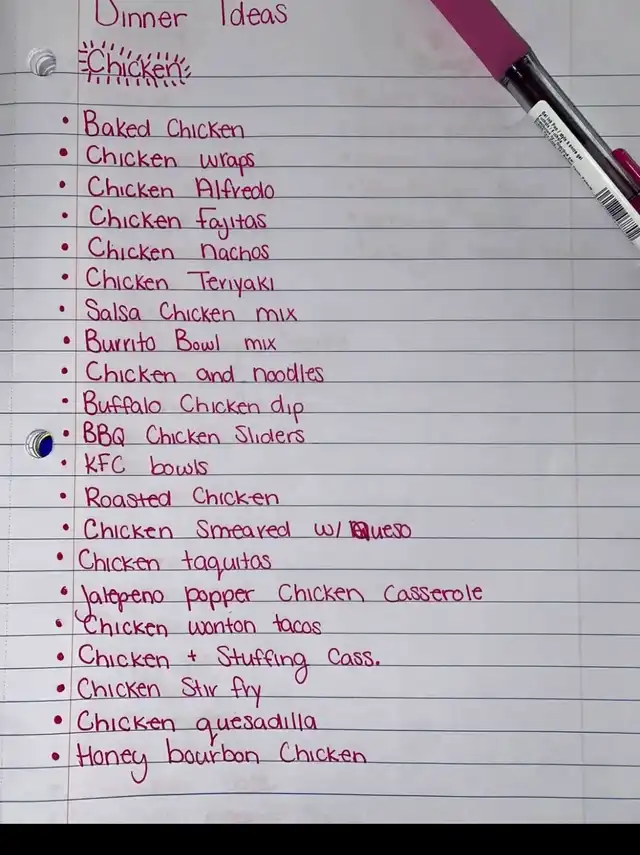 Dinner Ideas
Chicken
• Baked Chicken
• Chicken wraps
• Chicken Alfredo
• Chicken Fajitas
• Chicken nachos
• Chicken Teriyaki
• Salsa Chicken mix
• Burrito Bowl mix
• Chicken and noodles
• Buffalo Chicken dip
• BBQ Chicken Sliders
• KFC bowls
• Roasted Chicken
• Chicken Smeared w/ Queso
• Chicken taquitos
• Jalepeno popper Chicken Casserole
• Chicken wonton tacos
• Chicken + Stuffing Cass.
• Chicken Stir fry
• Chicken quesadilla
• Honey bourbon Chicken